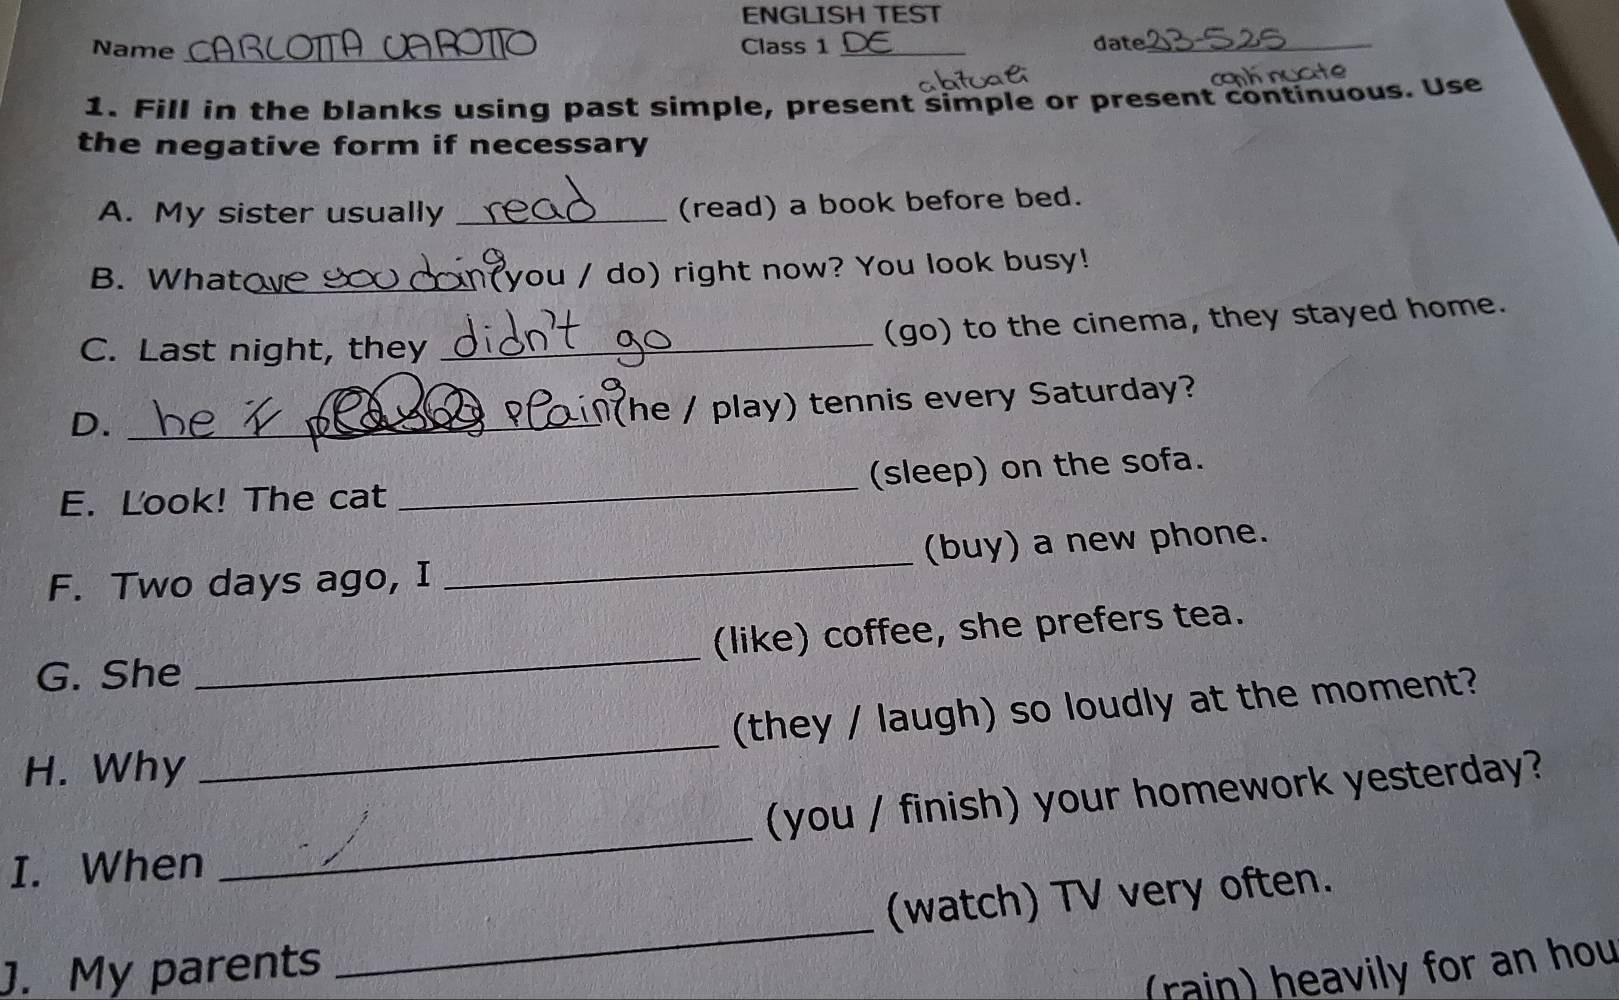 ENGLISH TEST
Name CARLOTTA VAROTTO Class 1 DE date 23-525
abtuali continuate
1. Fill in the blanks using past simple, present simple or present continuous. Use
the negative form if necessary
A. My sister usually read (read) a book before bed.
B. What ave you doing (you / do) right now? You look busy!
C. Last night, they didn't go (go) to the cinema, they stayed home.
D. he is plaing (he / play) tennis every Saturday?
E. Look! The cat ____ (sleep) on the sofa.
F. Two days ago, I ____ (buy) a new phone.
G. She ____ (like) coffee, she prefers tea.
H. Why ____ (they / laugh) so loudly at the moment?
I. When ____ (you / finish) your homework yesterday?
J. My parents ____ (watch) TV very often.
(rain) heavily for an hou